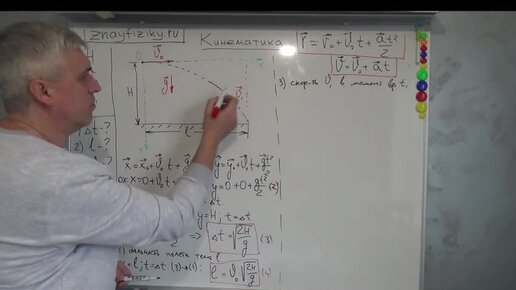 znayfiziky.ru
Кинематика
r⃗ = r⃗₀ + ϑ⃗₀ t + a⃗t²/2
ϑ⃗ = ϑ⃗₀ + a⃗ t
3) скор-ть ϑ⃗, в момент вр t₁
0 ϑ⃗₀
H
g⃗
ϑ⃗
l
Δt - ?
2) l - ?
x⃗ = x⃗₀ + ϑ⃗₀ t +
y⃗ = y⃗₀ + ϑ⃗₀ t + g⃗t²/2
ox: x = 0 + ϑ₀ t
y = 0 + 0 + gt²/2 (2)
y = H, t = Δt
=> Δt = √2H/g (3)
дальность полета тела l
= l; t = Δt (3)→(1): l = ϑ₀ √2H/g (4)